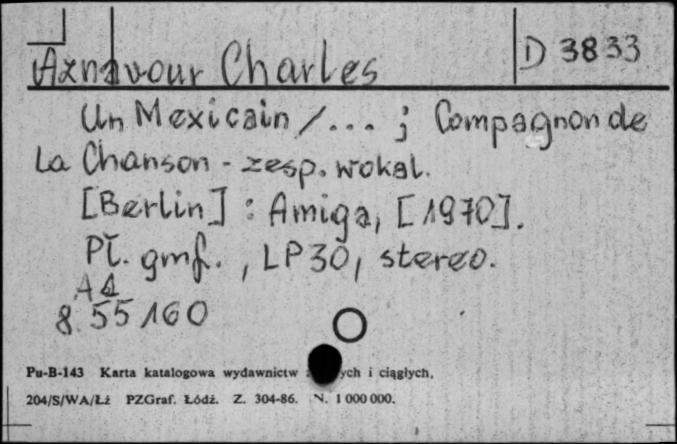 Aznavour Charles D 3833
Un Mexicain /... ; Compagnon de
La Chanson - zesp. wokal.
[Berlin] : Amiga, [1970].
Pł. gmf. , LP30, stereo.
A1
8.55160
Pu-B-143 Karta katalogowa wydawnictw i ciągłych,
204/S/WA/Łż PZGraf. Łódź. Z. 304-86. N. 1 000 000.